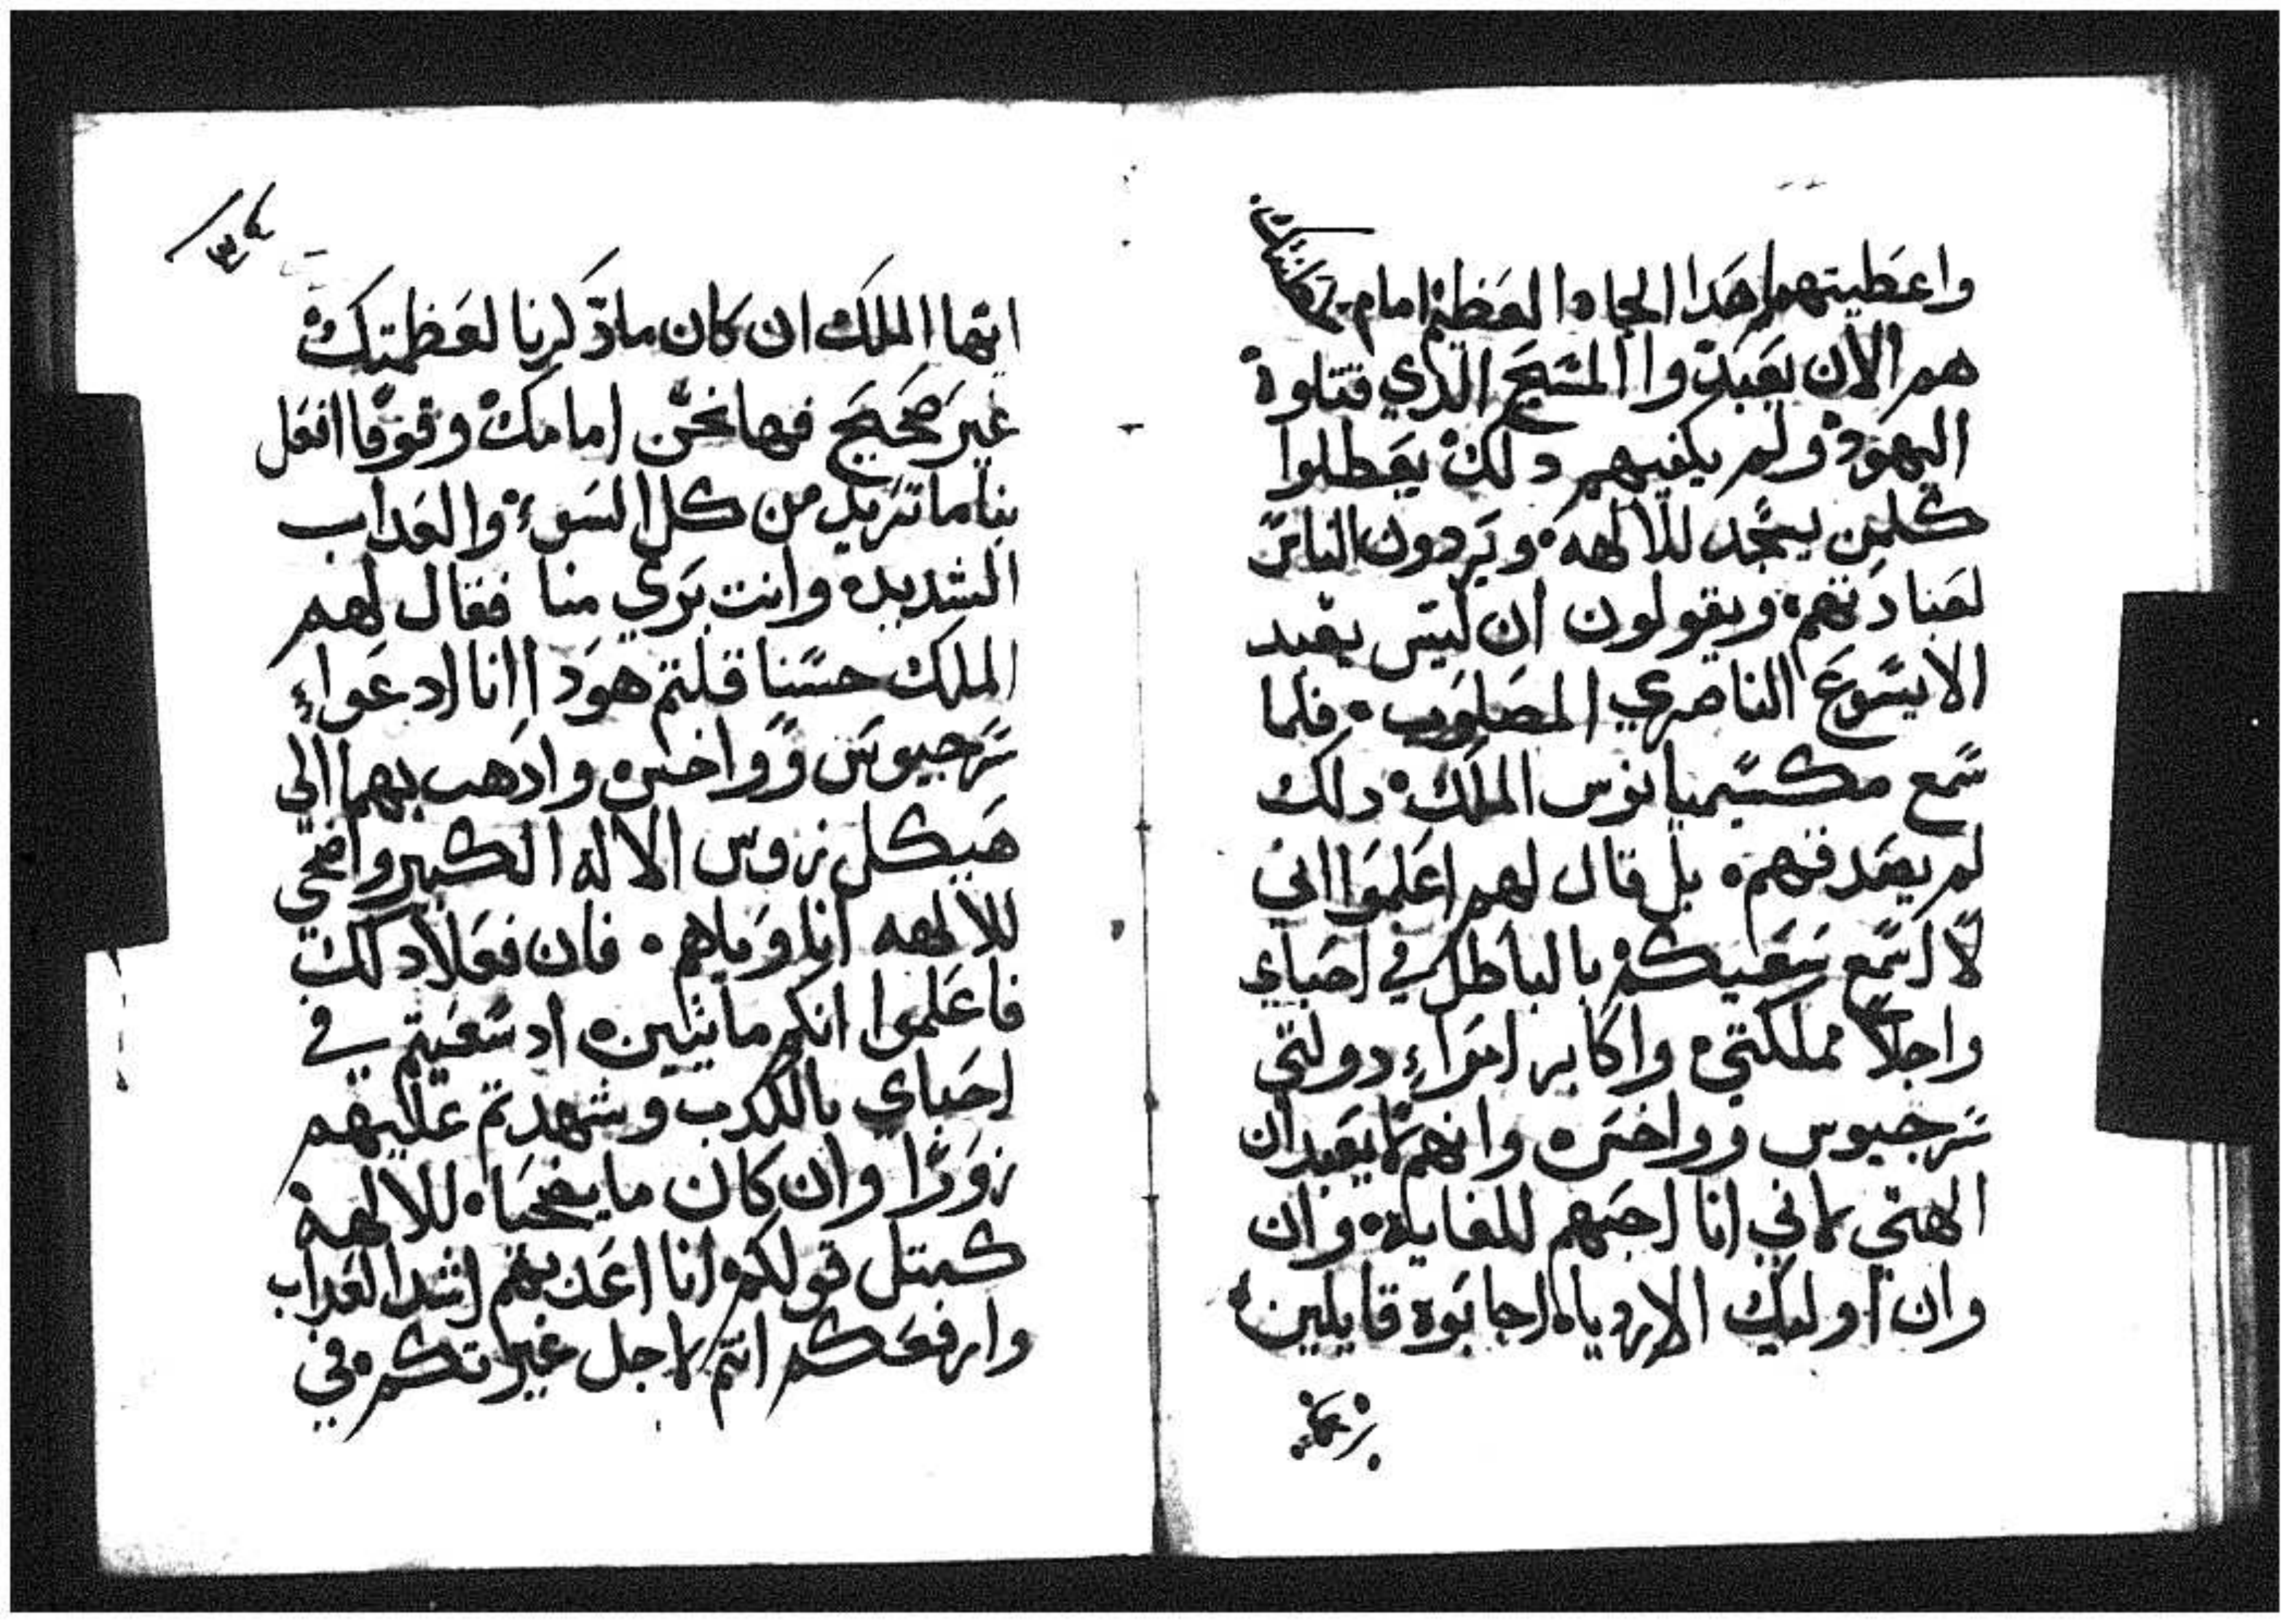 واعطيتهم هدا الجاه العظيم امام
هم الان يعبدوا المسيح الذي قتلوه
اليهود ولم يكفيهم دلك يعطلوا
كلمن يسجد للالهه ويردون الناس
لعبادتهم ويقولون ان ليس يعبد
الا يسوع الناصري المصلوب فلما
سمع مكسيميانوس الملك دلك
لم يصدقهم بل قال لهم اعلموا اني
لا اسمع سعيكم بالباطل في احباي
واجلا مملكتي واكابر امراء دولتي
سرجيوس وواخس وانهم لا يعبدان
الهتي لاني انا احبهم للغايه وان
وان اوليك الارديا اجابوه قايلين
ايها الملك ان كان مادكرنا لعظمتك
غير صحيح فها نحن امامك وقوفا افعل
بنا ما تريد من كل السوء والعداب
الشديده وانت بري منا فقال لهم
الملك حسنا قلتم هودا انا ادعواء
سرجيوس وواخس وادهب بهما الي
هيكل زوس الاله الكبير واضحي
للالهه انا وياهم فان فعلا دلك
فاعلموا انكم مايتين اد سعيتم في
احباي بالكدب وشهدتم عليهم
زورا وان كان ما يضحيا للالهه
كمتل قولكم انا اعدبهم اشد العداب
وارفعكم انتم لاجل غيراتكم في